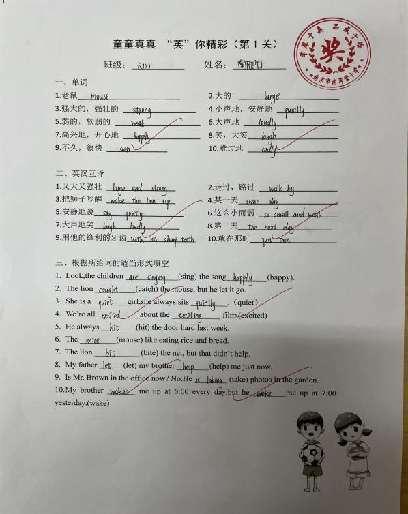 童童真真 “英”你精彩（第1关）
班级： 姓名：
一、单词
1.老鼠 mouse 2.大的 large
3.强大的，强壮的 strong 4.小声地，安静地 quietly
5.弱的，软弱的 weak 6.大声地 loudly
7.高兴地，开心地 happily 8.笑，大笑 laugh
9.不久，很快 soon 10.
二、英汉互译
1.又大又强壮 large and strong 2.走过，路过 walk by
3.把狮子吵醒 wake the lion up 4.某一天 some day
5.安静地说 say quietly 6.这么小而弱 so small and weak
7.大声地笑 laugh loudly 8.第二天 the next day
9.用他的锋利的牙齿 with his sharp teeth 10.就在那时 just then
三、根据所给词的适当形式填空
1. Look,the children are singing (sing) the song happily (happy).
2. The lion caught (catch) the mouse, but he let it go.
3. She is a quiet girl.she always sits quietly. (quiet)
4. We're all excited about the exciting film.(excited)
5. He always hit (hit) the door hard last week.
6. The mice (mouse) like eating rice and bread.
7. The lion bit (bite) the net, but that didn't help.
8. My father let (let) my brother help (help) me just now.
9. Is Mr. Brown in the office now? No.He is taking (take) photos in the garden.
10.My brother wakes me up at 6:00 every day.but he woke me up at 7:00
yesterday.(wake)